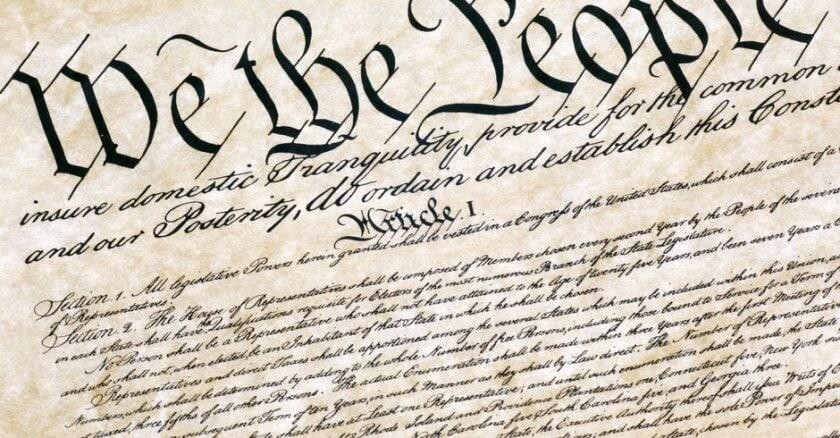 We the People
insure domestic Tranquility, provide for the common
and our Posterity, do ordain and establish this Const
Article. I.
Section. 1. All legislative Powers herein granted shall be vested in a Congress of the United States, which shall consist of a
of Representatives.
Section. 2. The House of Representatives shall be composed of Members chosen every second Year by the People of the several
in each State shall have the Qualifications requisite for Electors of the most numerous Branch of the State Legislature.
No Person shall be a Representative who shall not have attained to the Age of twenty five Years, and been seven Years a
and who shall not, when elected, be an Inhabitant of that State in which he shall be chosen.
Representatives and direct Taxes shall be apportioned among the several States which may be included within this Union,
Numbers, which shall be determined by adding to the whole Number of free Persons, including those bound to Service for a Term of
not taxed, three fifths of all other Persons. The actual Enumeration shall be made within three Years after the first Meeting of
subsequent Term of ten Years, in such Manner as they shall by Law direct. The Number of Representatives
shall have at least one Representative; and until such enumeration shall be made, the State
Rhode Island and Providence Plantations one, Connecticut five, New York
North Carolina five, South Carolina five, and Georgia three.
State, the Executive Authority thereof shall issue Writs of
and shall have the sole Power of Imp
chosen by the Legislat